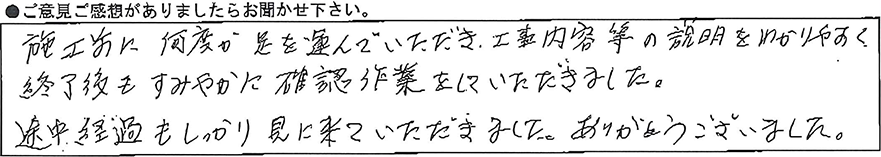 ●ご意見ご感想がありましたらお聞かせ下さい。
施工前に何度か足を運んでいただき、工事内容等の説明をわかりやすく
終了後もすみやかに確認作業をしていただきました。
途中経過もしっかり見に来ていただきました。ありがとうございました。